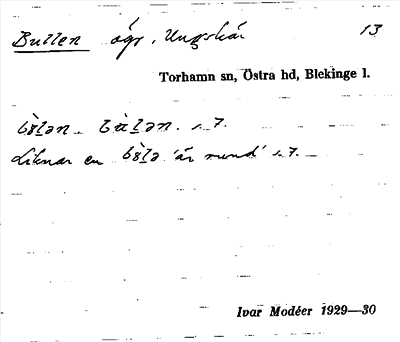 Bullen ögr, Ungskär 13
Torhamn sn, Östra hd, Blekinge l.
s. 7.
Liknar en 'är rund' s. 7.
Ivar Modéer 1929—30